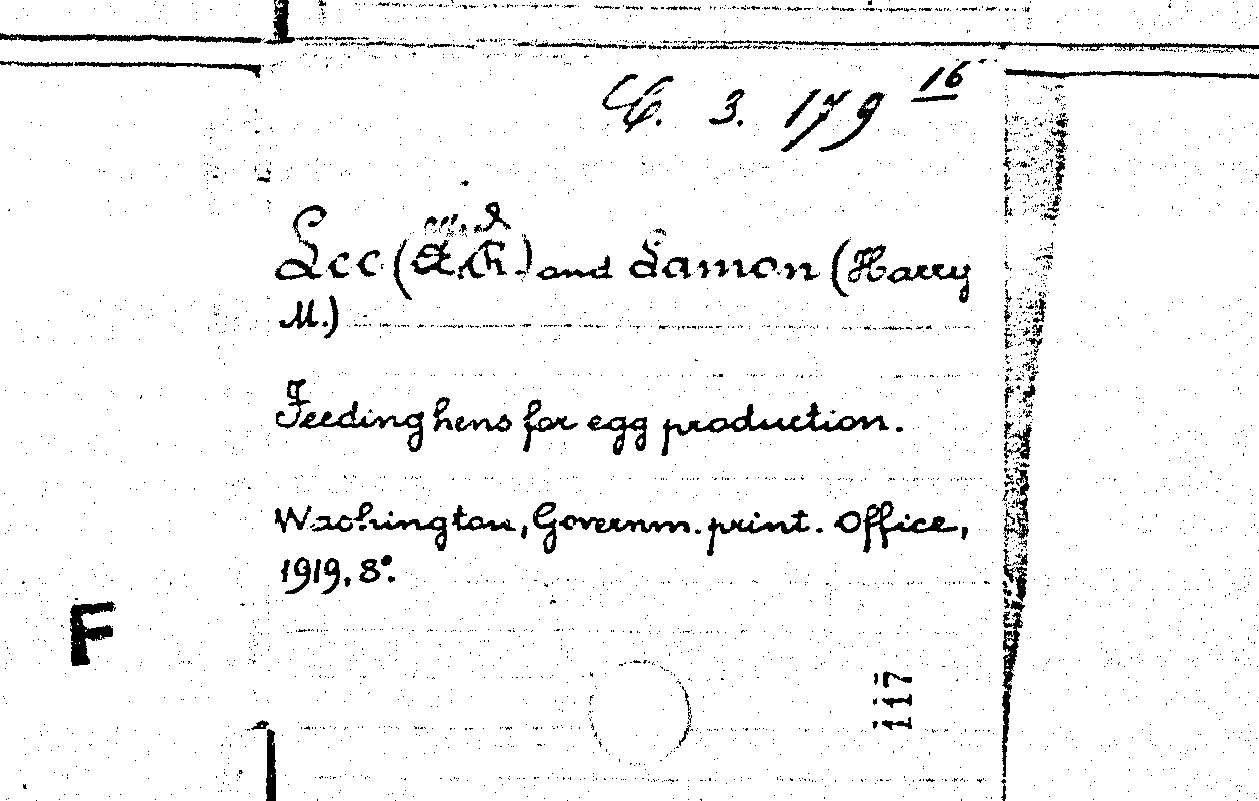 C. 3. 179 16
Lee (A.R.) and Lamon (Harry
M.)
Feeding hens for egg production.
Washington, Governm. print. Office,
1919, 8°.
F
117